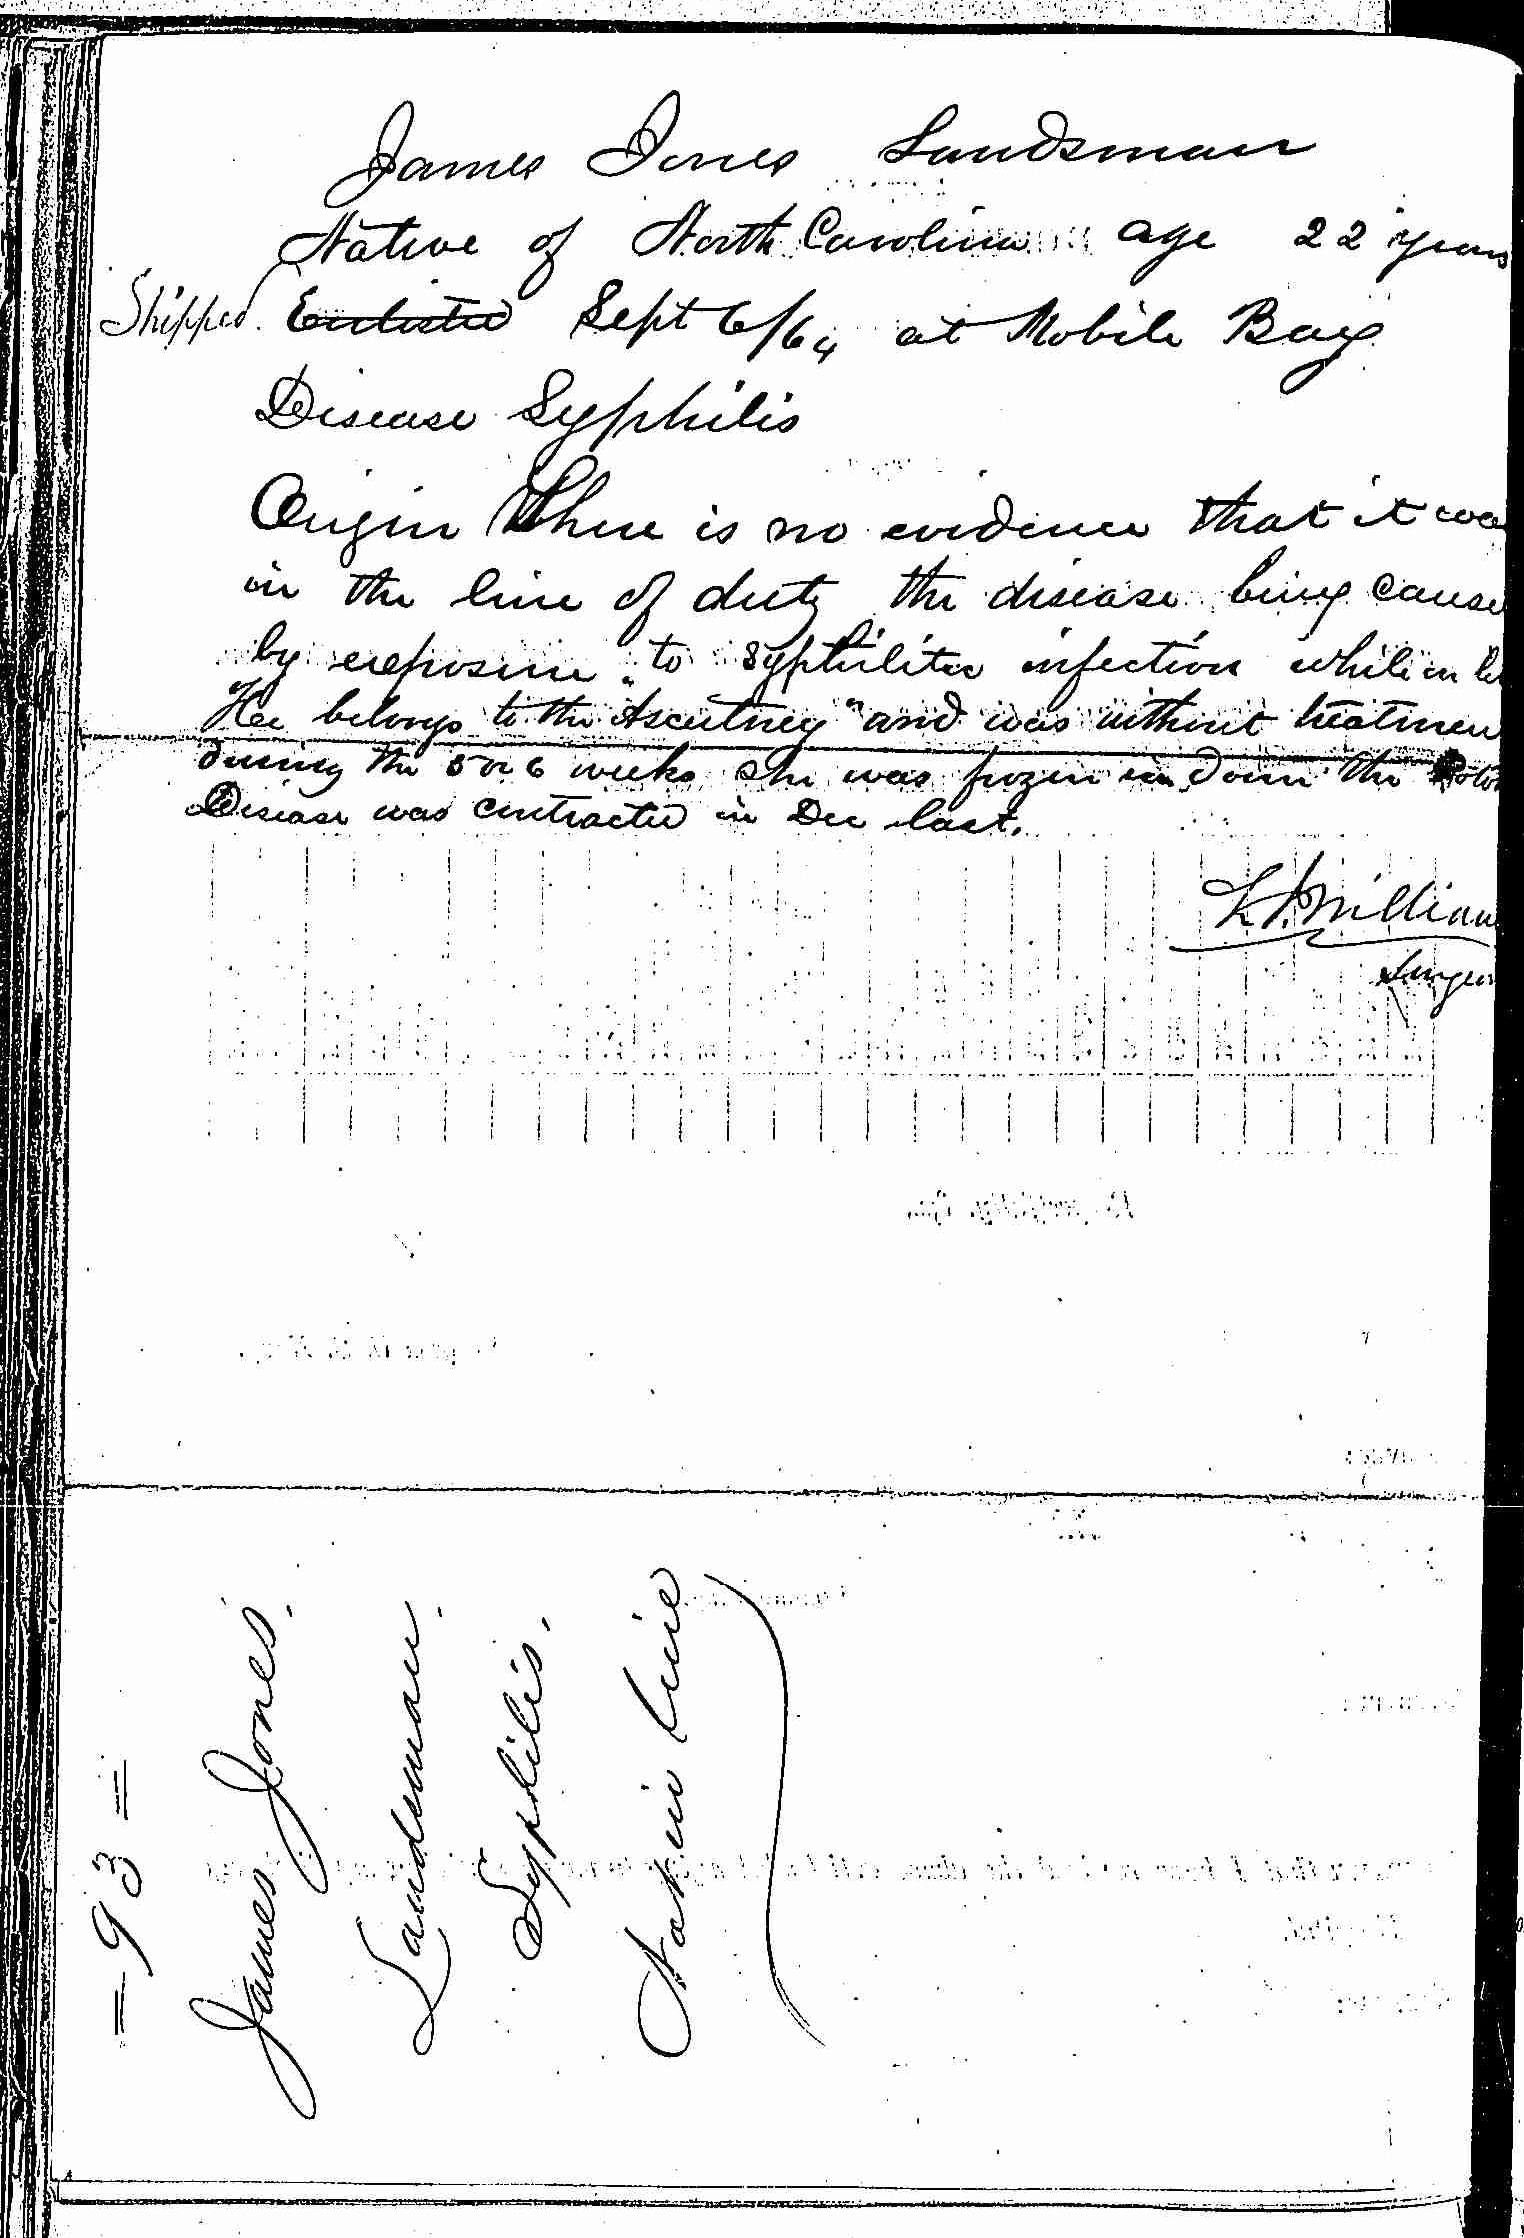 James Jones Landsman
Native of North Carolina age 22 years
Shipped Enlisted Sept 6/64 at Mobile Bay
Disease Syphilis
Origin There is no evidence that it was
in the line of duty the disease being cause
by exposure to syphilitic infection while in
He belongs to the "Ascutney" and was without treatmen
during the 5 or 6 weeks she was frozen in down the Poto
Disease was contracted in Dec last.
Surgeon
= 93 =
James Jones.
Landsman.
Syphilis.
Not in line